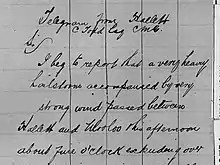 Telegram from Hallett
C Todd Esq CMG
Sir
I beg to report that a very heavy
hailstorm accompanied by very
strong wind passed between
Hallett and Ulooloo this afternoon
about five o'clock extending over